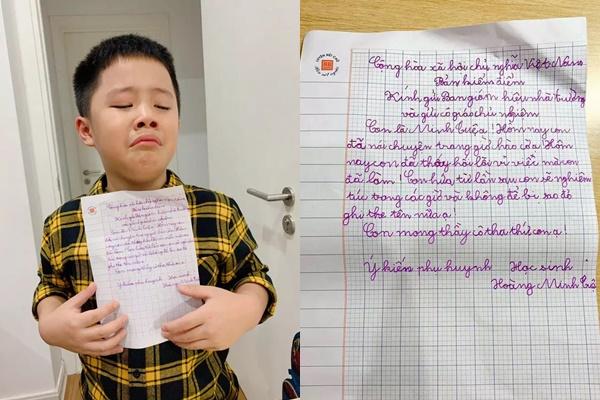 Cộng hòa xã hội chủ nghĩa Việt Nam
Bản kiểm điểm
Kính gửi Ban giám hiệu nhà trường
và gửi cô giáo chủ nghiệm
Con là Minh ạ! Hôm nay con
đã nói chuyện trong giờ hào của Hôm
nay con đã thấy hối lỗi vì việc mà con
đã làm! Con hứa, từ lần sau con sẽ nghiêm
túc trong các giờ và không để bị sao đỏ
ghi thẻ tên nữa ạ!
Con mong thầy cô tha thứ con ạ!
Ý kiến phụ huynh Học sinh
Hoàng Minh